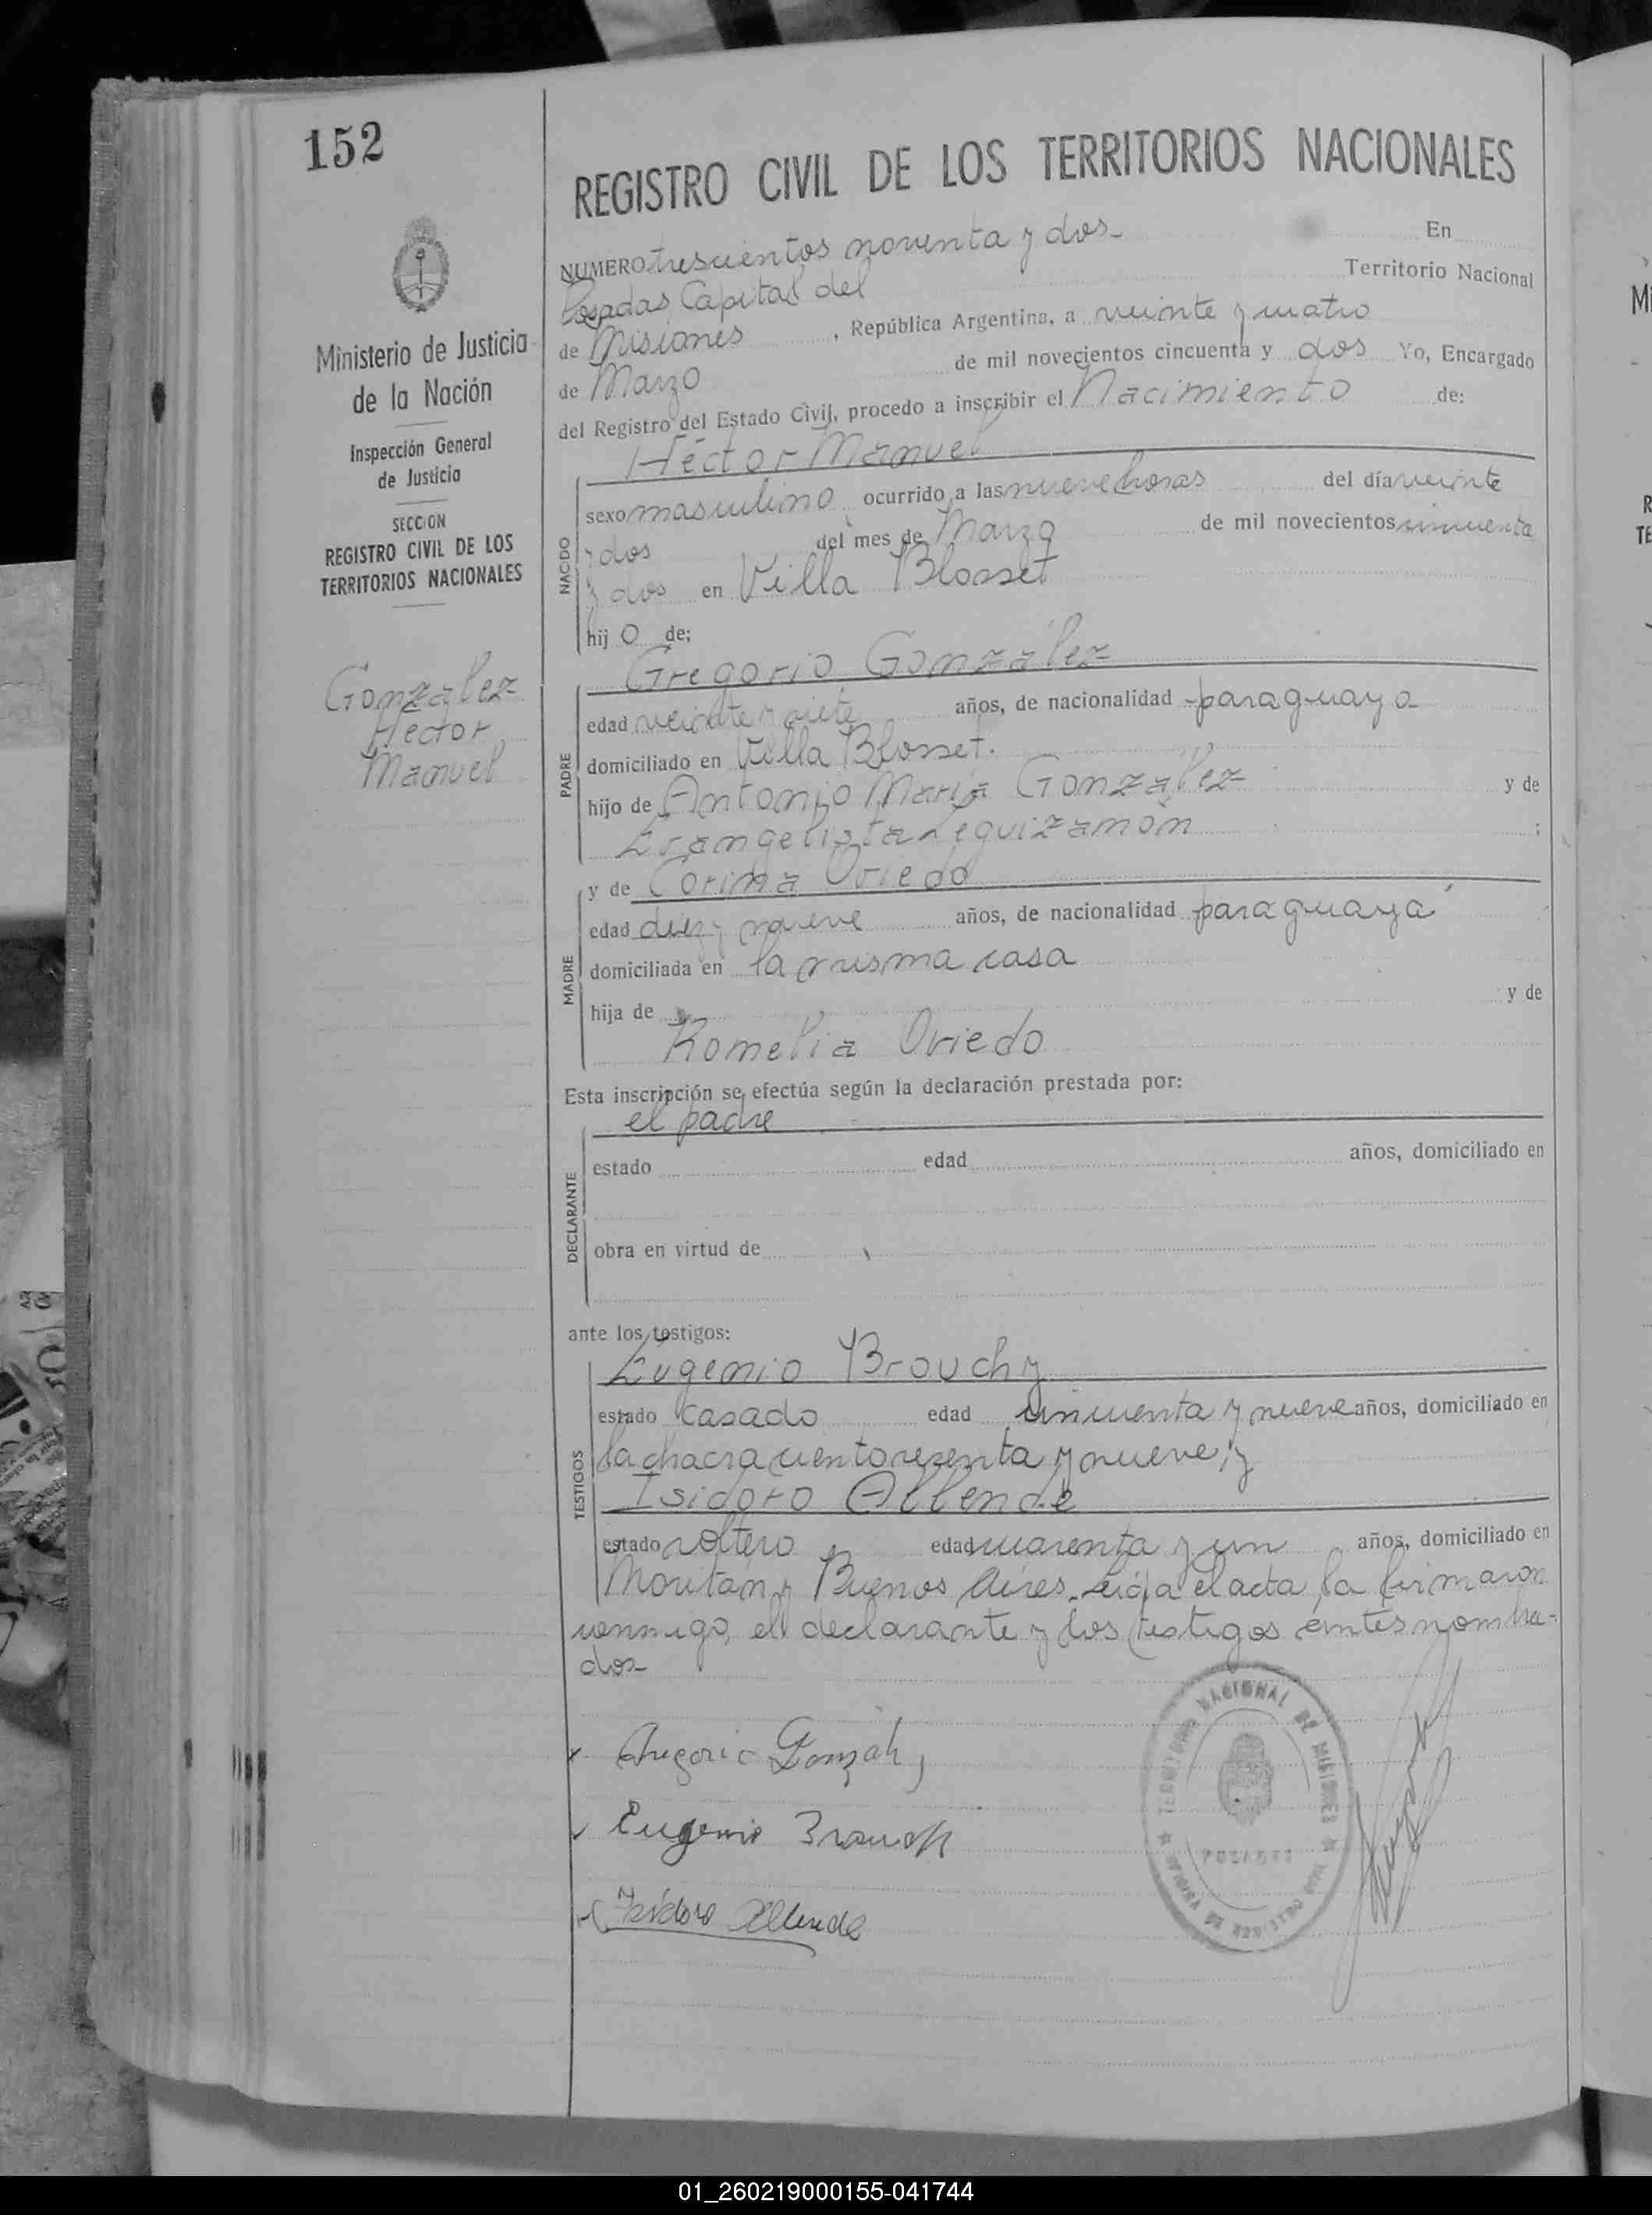 152
REGISTRO CIVIL DE LOS TERRITORIOS NACIONALES
NUMERO trescientos noventa y dos- En
Posadas Capital del Territorio Nacional
de Misiones, República Argentina, a veinte y cuatro
de Marzo de mil novecientos cincuenta y dos Yo, Encargado
del Registro del Estado Civil, procedo a inscribir el Nacimiento de:
Héctor Manuel
Ministerio de Justicia
de la Nación
Inspección General
de Justicia
SECCION
REGISTRO CIVIL DE LOS
TERRITORIOS NACIONALES
González
Héctor
Manuel
NACIDO
sexo masculino ocurrido a las nueve horas del día veinte
y dos del mes de Marzo de mil novecientos cincuenta
y dos en Villa Blosset
hijo de;
Gregorio González
PADRE
edad veinte y siete años, de nacionalidad paraguaya
domiciliado en Villa Blosset.
hijo de Antonio María González y de
Evangelista Leguizamón ;
MADRE
y de Corina Oviedo
edad diez y nueve años, de nacionalidad paraguaya
domiciliada en la misma casa
hija de y de
Romelia Oviedo
Esta inscripción se efectúa según la declaración prestada por:
el padre
DECLARANTE
estado edad años, domiciliado en
obra en virtud de
ante los testigos:
Eugenio Brouchy
TESTIGOS
estado casado edad cincuenta y nueve años, domiciliado en
la chacra ciento sesenta y nueve, y
Isidoro Allende
estado soltero edad cuarenta y un años, domiciliado en
Moritán y Buenos Aires. Leída el acta, la firmaron
conmigo, el declarante y los testigos antes nombra-
dos-
Gregorio
Eugenio
Isidoro Allende
TERRITORIO NACIONAL DE MISIONES
POSADAS
01_260219000155-041744